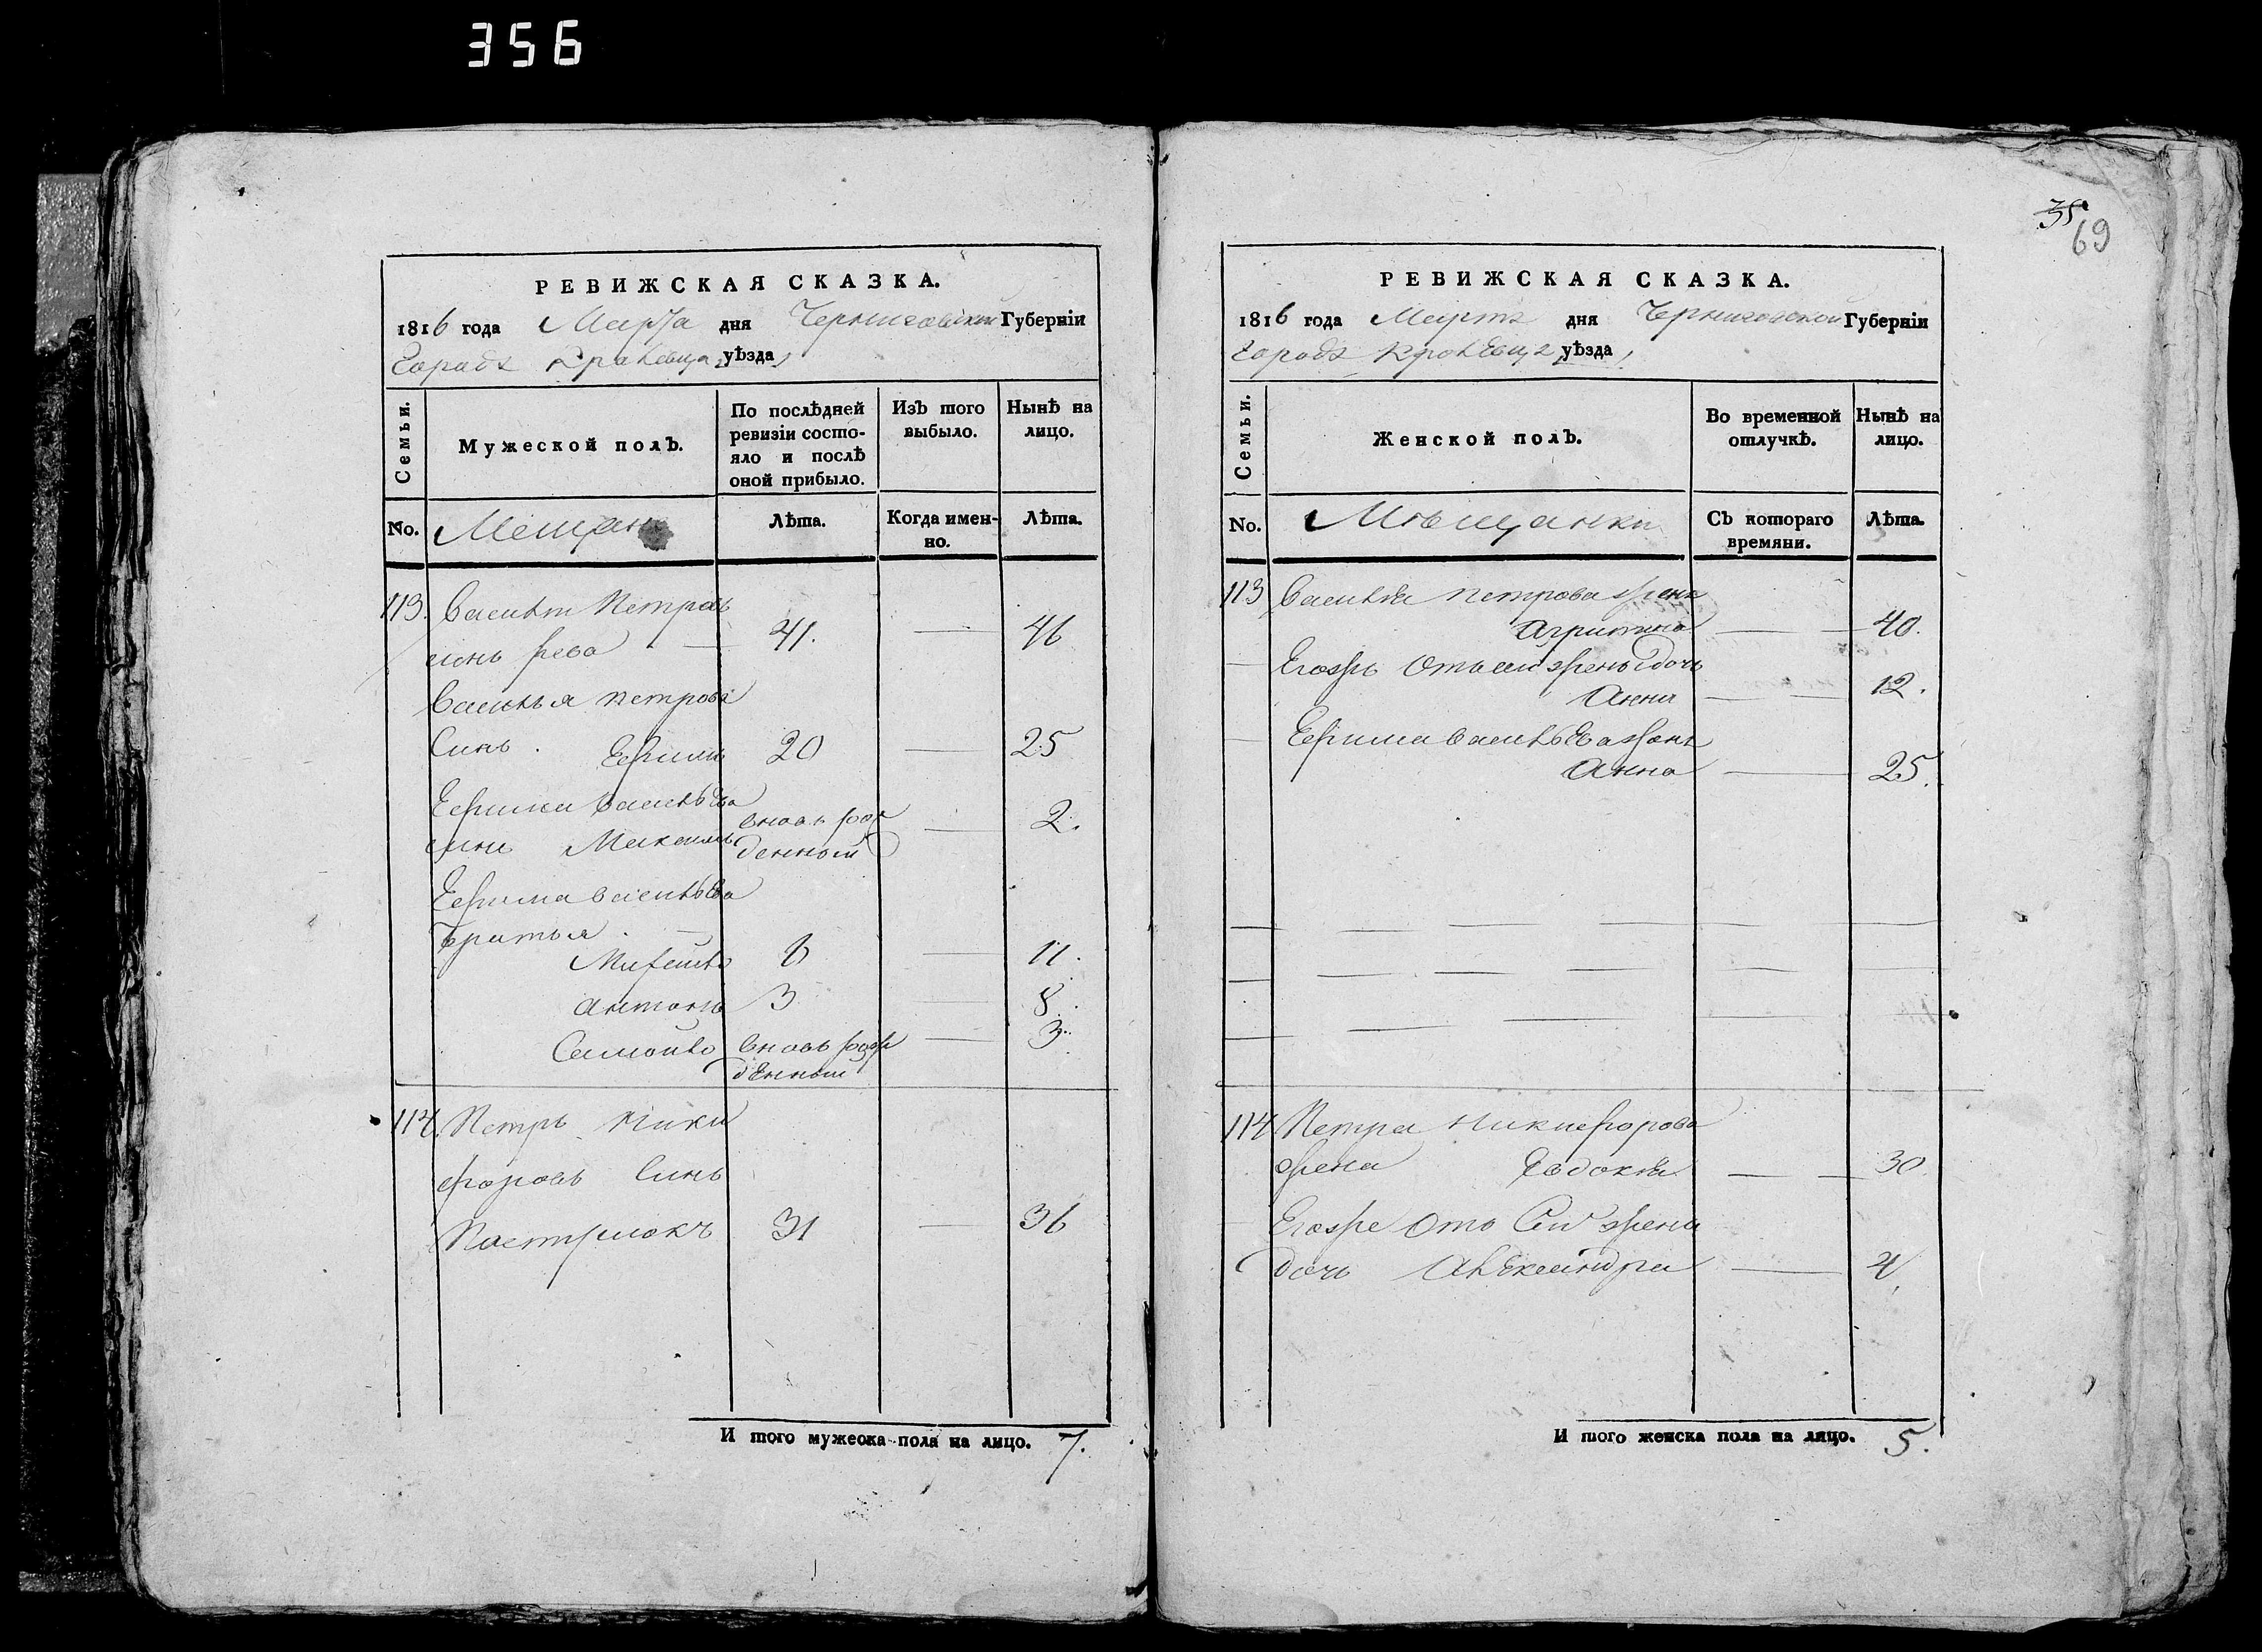 356
35
69
РЕВИЖСКАЯ СКАЗКА.
1816 года Марта дня Черниговской Губернїи
Города Кролевца уѣзда
Семьи.
Мужеской полъ.
По послѣдней ревизїи состо-
яло и послѣ оной прибыло.
Изъ того выбыло.
Нынѣ на лицо.
No.
Мещане
Лѣта.
Когда имен-
но.
Лѣта.
113. Василей Петровъ
синъ Рева 41. 46
Василья Петрова
Синъ. Ефимъ 20 25
Ефима Васильева
синъ Максимъ вновь рож
денный 2.
Ефима Васильева
братья.
Мифей 11.
Антонъ 3 8.
Самойло вновь рож
денный 3.
114. Петръ Ники
форовъ Синъ
31 36
И того мужеска пола на лицо. 7.
РЕВИЖСКАЯ СКАЗКА.
1816 года Марта дня Черниговской Губернїи
Города Кролевца уѣзда
Семьи.
Женской полъ.
Во временной отлучкѣ.
Нынѣ на лицо.
No.
Мѣщанки
Съ котораго времяни.
Лѣта.
113 Василия Петрова жена
Агрипина 40.
Егожъ отъ сей жены дочь
Анна 12.
Ефима Васильева жена
Анна 25.
114 Петра Никифорова
жена Евдокия 30
Егоже отъ Сей жены
дочь Александра 4.
И того женска пола на лицо. 5.